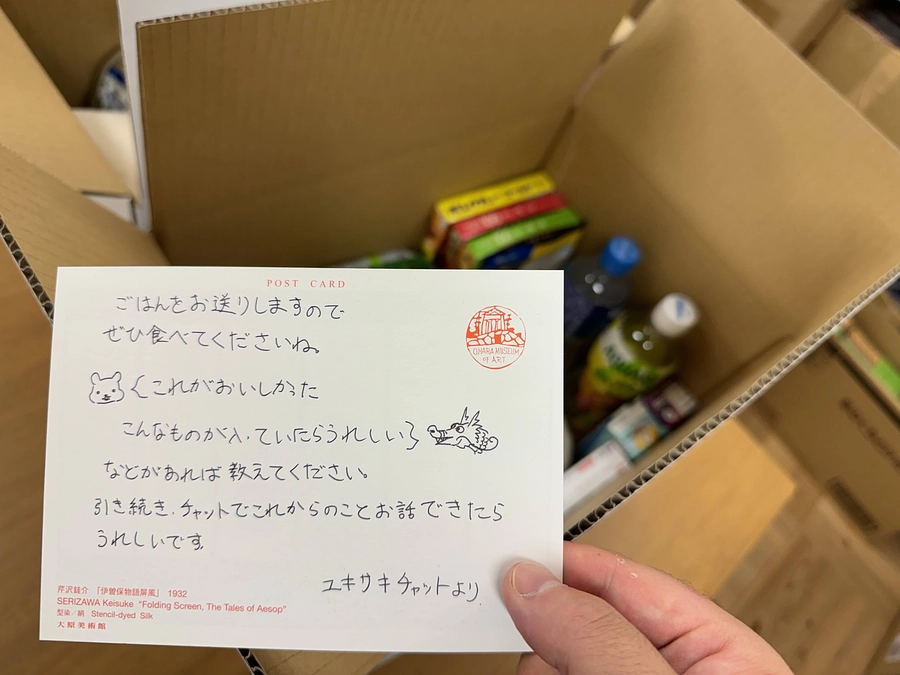 POST CARD
ごはんをお送りしますので
ぜひ食べてくださいね。
これがおいしかった
こんなものが入っていたらうれしい
などがあれば教えてください。
引き続き、チャットでこれからのことお話できたら
うれしいです。
ユキサキチャットより
OHARA MUSEUM
OF ART
芹沢銈介 「伊曽保物語屏風」 1932
SERIZAWA Keisuke "Folding Screen, The Tales of Aesop"
型染/絹 Stencil-dyed Silk
大原美術館